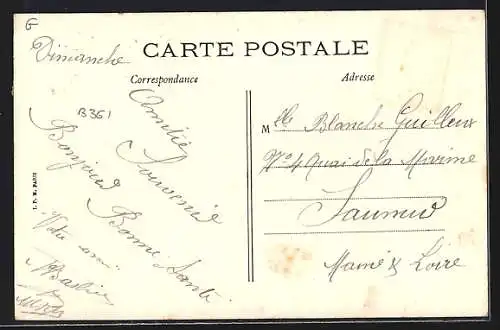 G
Dimanche
CARTE POSTALE
Correspondance
Adresse
B361
Amitié
Souvenir
Bonjour
Bonne Santé
Votre ami
I. P. M. PARIS
Mlle Blanche Guilleux
No 4 Quai de la Marine
Saumur
Maine & Loire